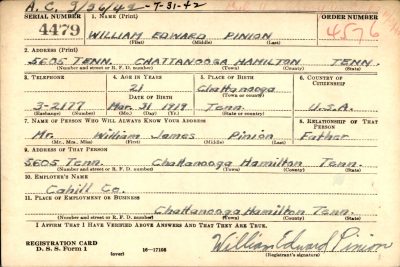 A. C. 3/26/42 - 7-31-42
SERIAL NUMBER 1. NAME (Print) ORDER NUMBER
4479 WILLIAM EDWARD PINION 4576
(First) (Middle) (Last)
2. ADDRESS (Print)
5605 TENN. CHATTANOOGA HAMILTON TENN.
(Number and street or R. F. D. number) (Town) (County) (State)
3. TELEPHONE 4. AGE IN YEARS 5. PLACE OF BIRTH 6. COUNTRY OF CITIZENSHIP
21 Chattanooga
DATE OF BIRTH (Town or county)
3-2177 Mar. 31 1919 Tenn. U.S.A.
(Exchange) (Number) (Mo.) (Day) (Yr.) (State or country)
7. NAME OF PERSON WHO WILL ALWAYS KNOW YOUR ADDRESS 8. RELATIONSHIP OF THAT PERSON
Mr. William James Pinion Father
(Mr., Mrs., Miss) (First) (Middle) (Last)
9. ADDRESS OF THAT PERSON
5605 Tenn. Chattanooga Hamilton Tenn.
(Number and street or R. F. D. number) (Town) (County) (State)
10. EMPLOYER'S NAME
Cahill Co.
11. PLACE OF EMPLOYMENT OR BUSINESS
Chattanooga Hamilton Tenn.
(Number and street or R. F. D. number) (Town) (County) (State)
I AFFIRM THAT I HAVE VERIFIED ABOVE ANSWERS AND THAT THEY ARE TRUE.
REGISTRATION CARD
D. S. S. Form 1 (over) 16-17105 William Edward Pinion
(Registrant's signature)